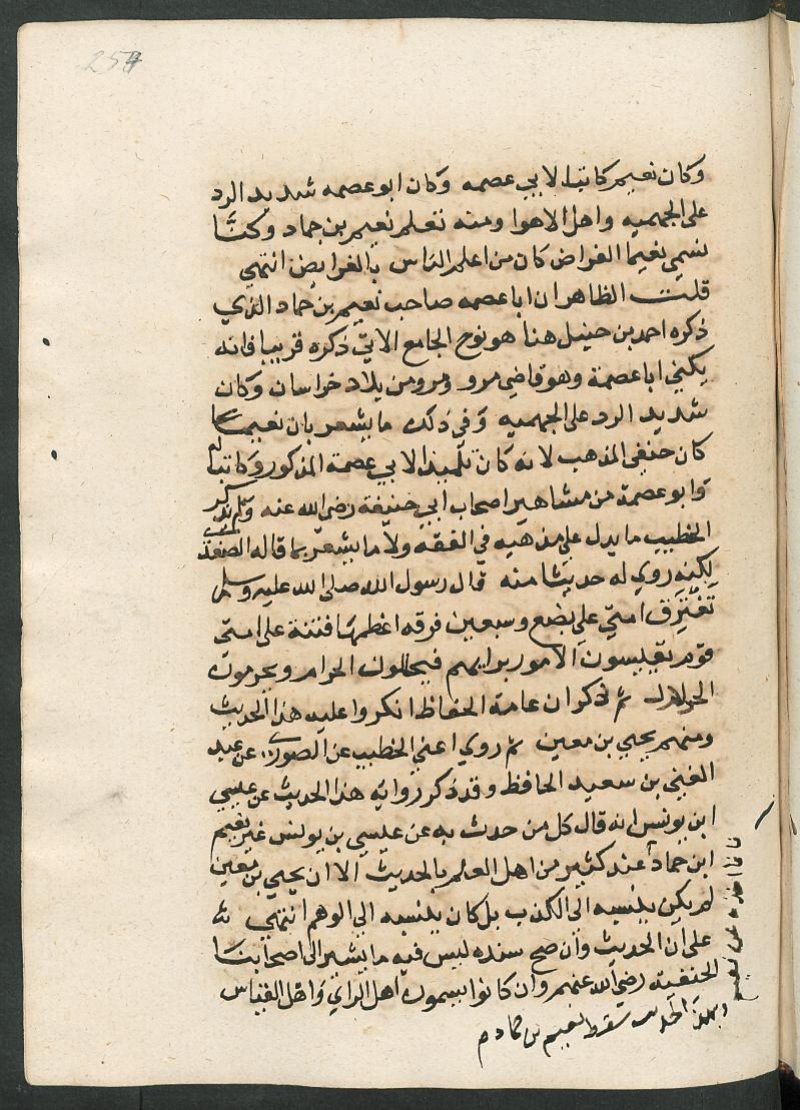 254
وكان نعيم كاتبا لابي عصمه وكان ابو عصمه شديد الرد
على الجهميه واهل الاهوا ومنه تعلم نعيم بن حماد وكنا
نسمي نعيما الفراض كان من اعلم الناس بالفرايض انتهي
قلت الظاهر ان ابا عصمه صاحب نعيم بن حماد الذي
ذكره احمد بن حنبل هنا هو نوح الجامع الاتي ذكره قريبا فانه
يكني ابا عصمة وهو قاضي مرو ومرو من بلاد خراسان وكان
شديد الرد على الجهميه وفي ذلك ما يشعر بان نعيما
كان حنفي المذهب لانه كان تلميذا لابي عصمة المذكور وكاتبا له
وابو عصمة من مشاهير اصحاب ابي حنيفة رضي الله عنه ولم يذكر
الخطيب ما يدل على مذهبه في الفقه ولا ما يشعر بما قاله
لكنه روي له حديثا منه قال رسول الله صلى الله عليه وسلم
تفترق امتي على بضع وسبعين فرقه اعظمها فتنة على امتي
قوم يقيسون الامور برايهم فيحللون الحرام ويحرمون
الحلال ثم ذكر ان عامة الحفاظ انكروا عليه هذا الحديث
ومنهم يحيي بن معين ثم روي اعني الخطيب عن الصوري عن عبد
الغني بن سعيد الحافظ وقد ذكر رواية هذا الحديث عن عيسي
ابن يونس انه قال كل من حدث به عن عيسي بن يونس غير نعيم
ابن حماد عند كثير من اهل العلم بالحديث الا ان يحيي بن معين
لم يكن ينسبه الى الكذب بل كان ينسبه الي الوهم انتهي
على ان الحديث وان صح سنده ليس فيه ما يشير الى اصحابنا
الحنفية رضي الله عنهم وان كانوا يسمون اهل الراي واهل القياس
فانما اخذه عن نعيم
وبهذا الحديث سقط نعيم بن حماد